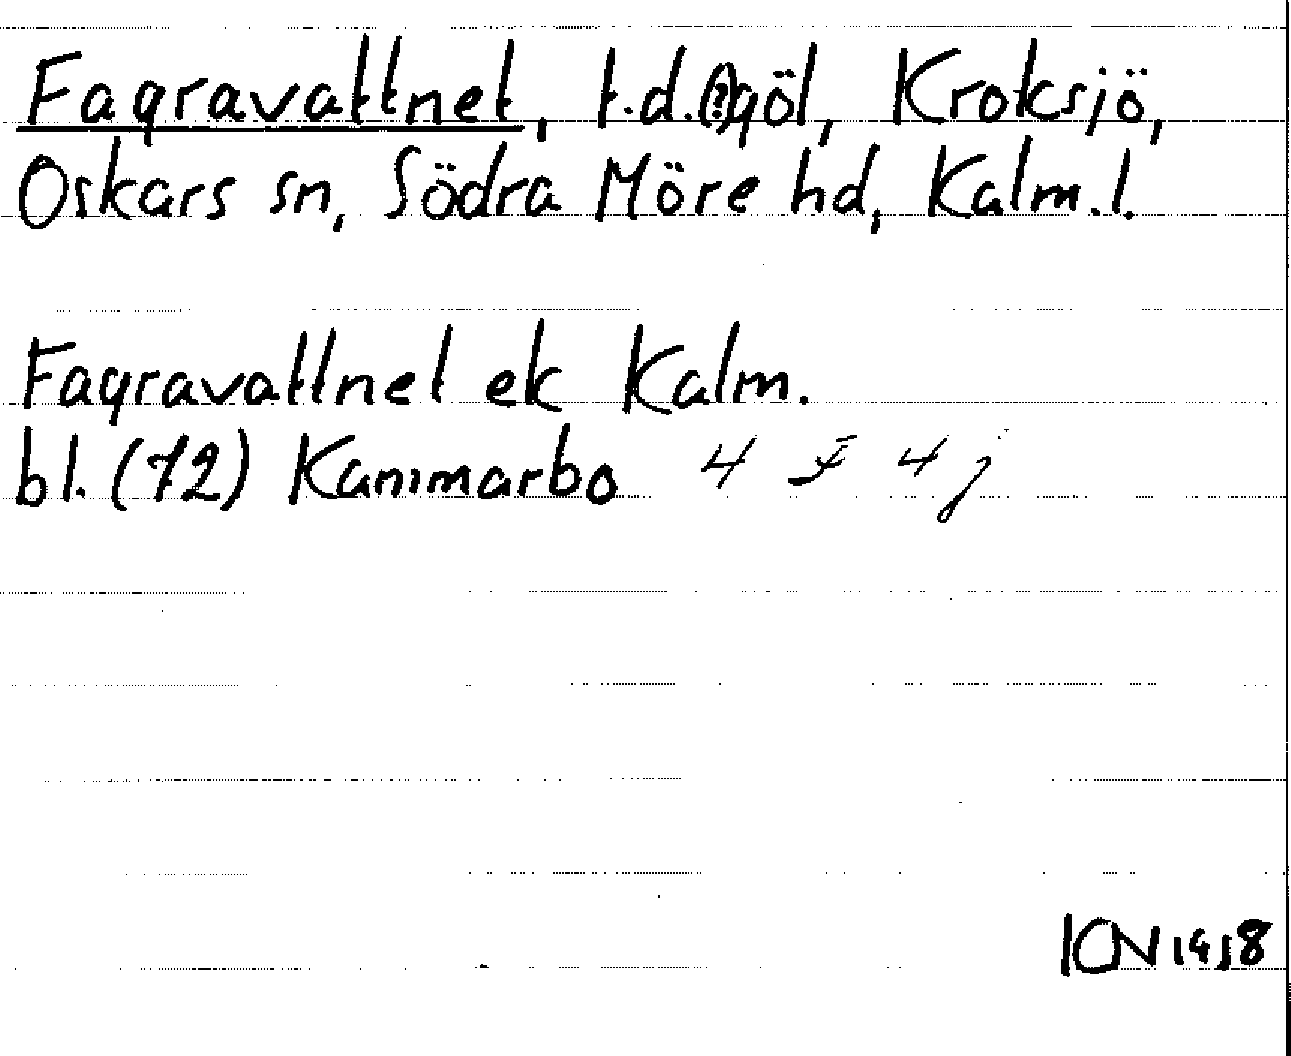 Fagravattnet, t.d.(?)göl, Kroksjö,
Oskars sn, Södra Möre hd, Kalm.l.
Fagravattnet ek Kalm.
bl. (72) Kammarbo 4 F 4 j
ICN 1918